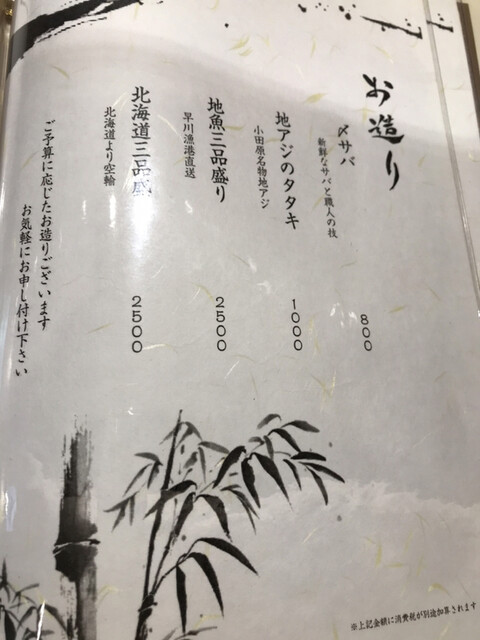 お造り
〆サバ
新鮮なサバと職人の技
800
地アジのタタキ
小田原名物地アジ
1000
地魚三品盛り
早川漁港直送
2500
北海道三品盛
北海道より空輸
2500
ご予算に応じたお造りございます
お気軽にお申し付け下さい
※上記金額に消費税が別途加算されます